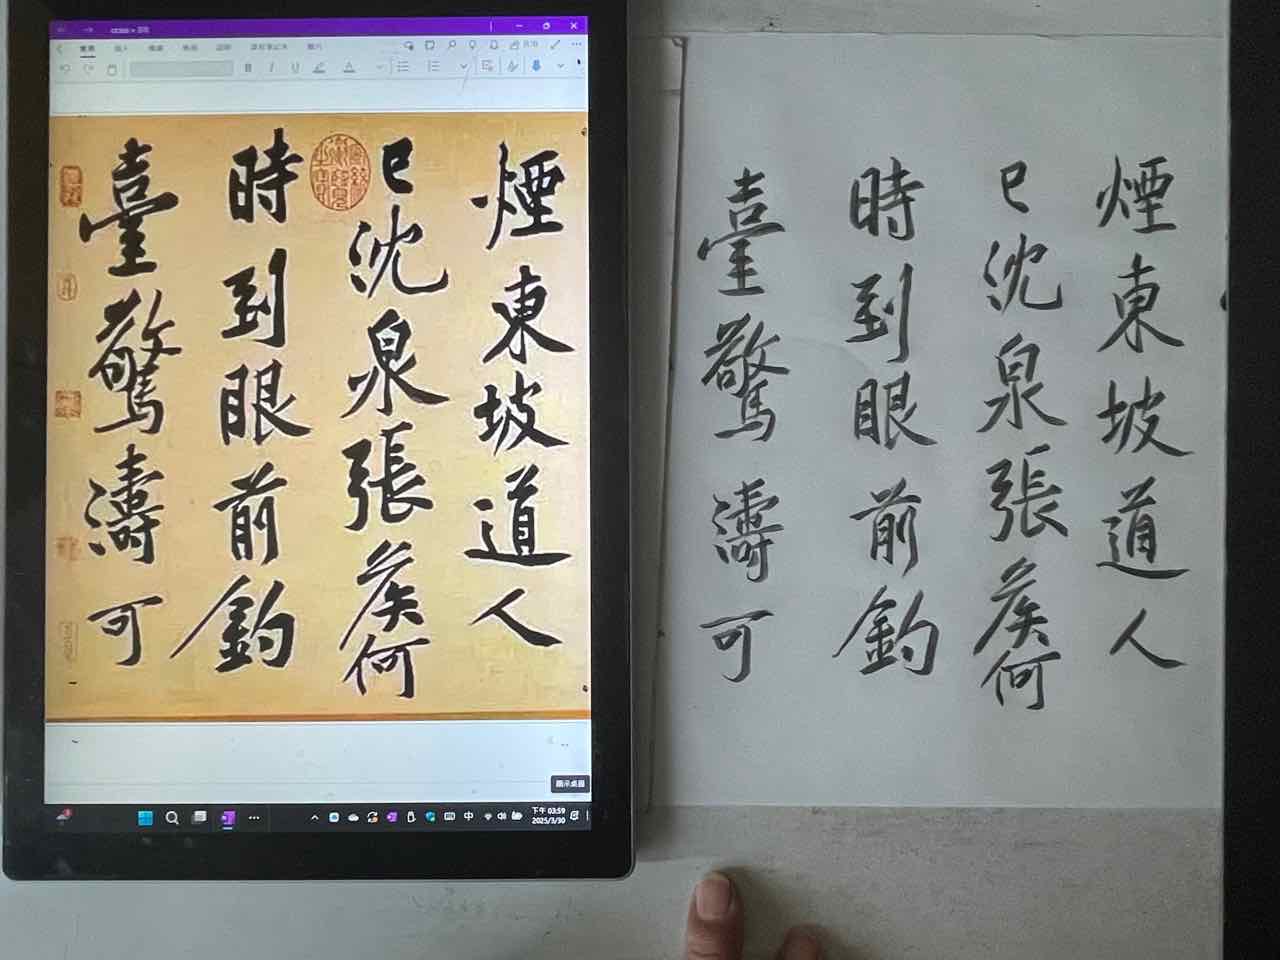 煙東坡道人
已沈泉張矦何
時到眼前釣
臺驚濤可
煙東坡道人
已沈泉張矦何
時到眼前釣
臺驚濤可
B I U
中
下午 03:59
2025/3/30
顯示桌面